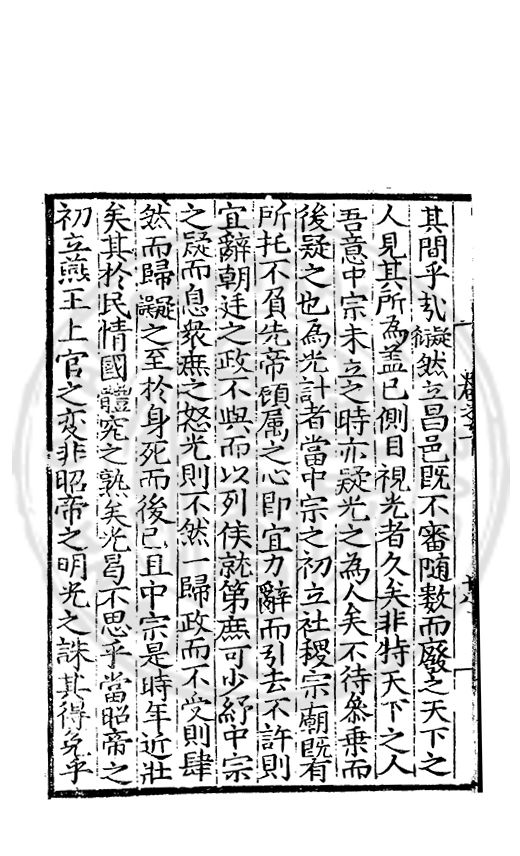 其間乎
然立昌邑既不審随數而廢之天下之
人見其所為盖已側目視光者久矣非特天下之人
吾意中宗未立之時亦疑光之為人矣不待叅乗而
後疑之也為光計者當中宗之初立社稷宗廟既有
所托不負先帝顧属之心即宜力辭而引去不許則
宜辭朝廷之政不與而以列侯就第庶可少紓中宗
之疑而息衆庶之怒光則不然一歸政而不受則肆
然而歸之至於身死而後已且中宗是時年近壯
矣其於民情國體究之熟矣光曷不思乎當昭帝之
初立燕王上官之変非昭帝之明光之誅其得免乎